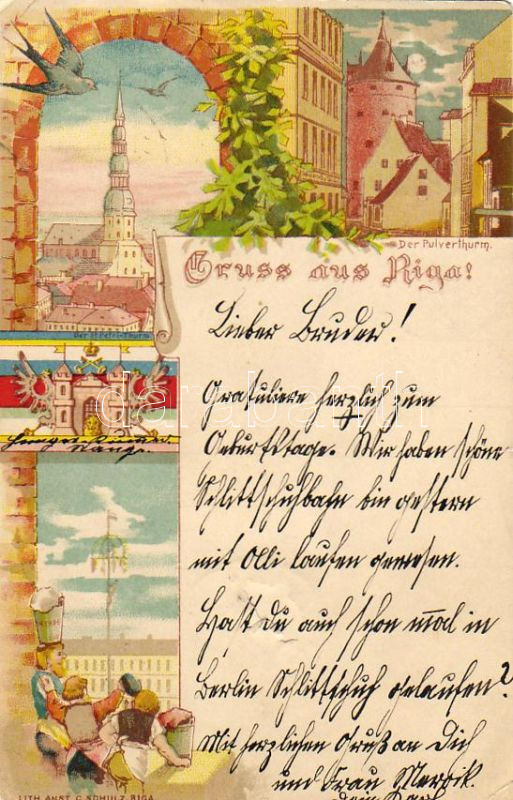 Der Pulverthurm.
Gruss aus Riga!
Der St. Petri-Thurm
Lieber Bruder!
Gratuliere herzlich zum
Geburtstage. Wir haben schöne
Schlittschuhbahn bin gestern
mit Olli laufen gewesen.
Hast Du auch schon mal in
Berlin Schlittschuh gelaufen?
Mit herzlichen Gruß an Dich
und Frau
darabanth
LITH. ANST. C. SCHULZ, RIGA